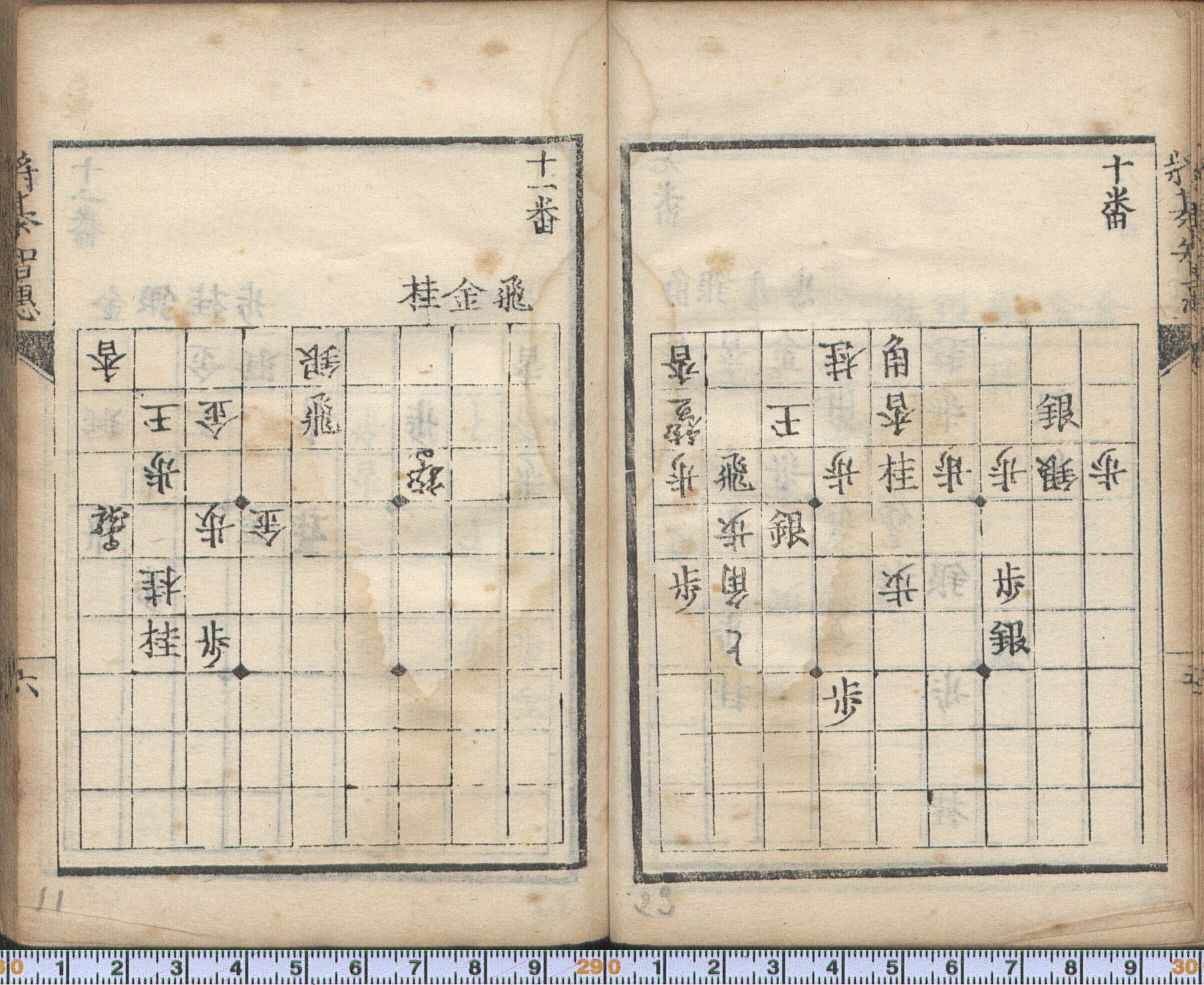 十番
香 桂 角
王 香 銀
歩 飛 歩 桂 歩 歩 銀 歩
歩 銀
歩 角 歩 歩
と 銀
歩
十一番
桂 金 飛
香 銀
王 金 飛
歩
歩 金
桂
桂 歩
将棊智恵
六
11
23
30 1 2 3 4 5 6 7 8 9 290 1 2 3 4 5 6 7 8 9 30